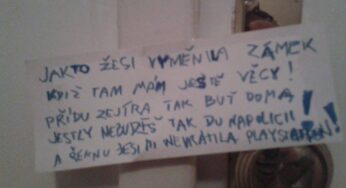 JAKTO ŽESI VYMĚNILA ZÁMEK
KDIŽ TAM MÁM JEŠTĚ VĚCY!
PŘÍDU ZEJTRA TAK BUŤ DOMA
JESTLY NEBUDEŠ TAK DU NAPOLICII!
A ŘEKNU ŽESI MI NEVRÁTILA PLAYSTATION!